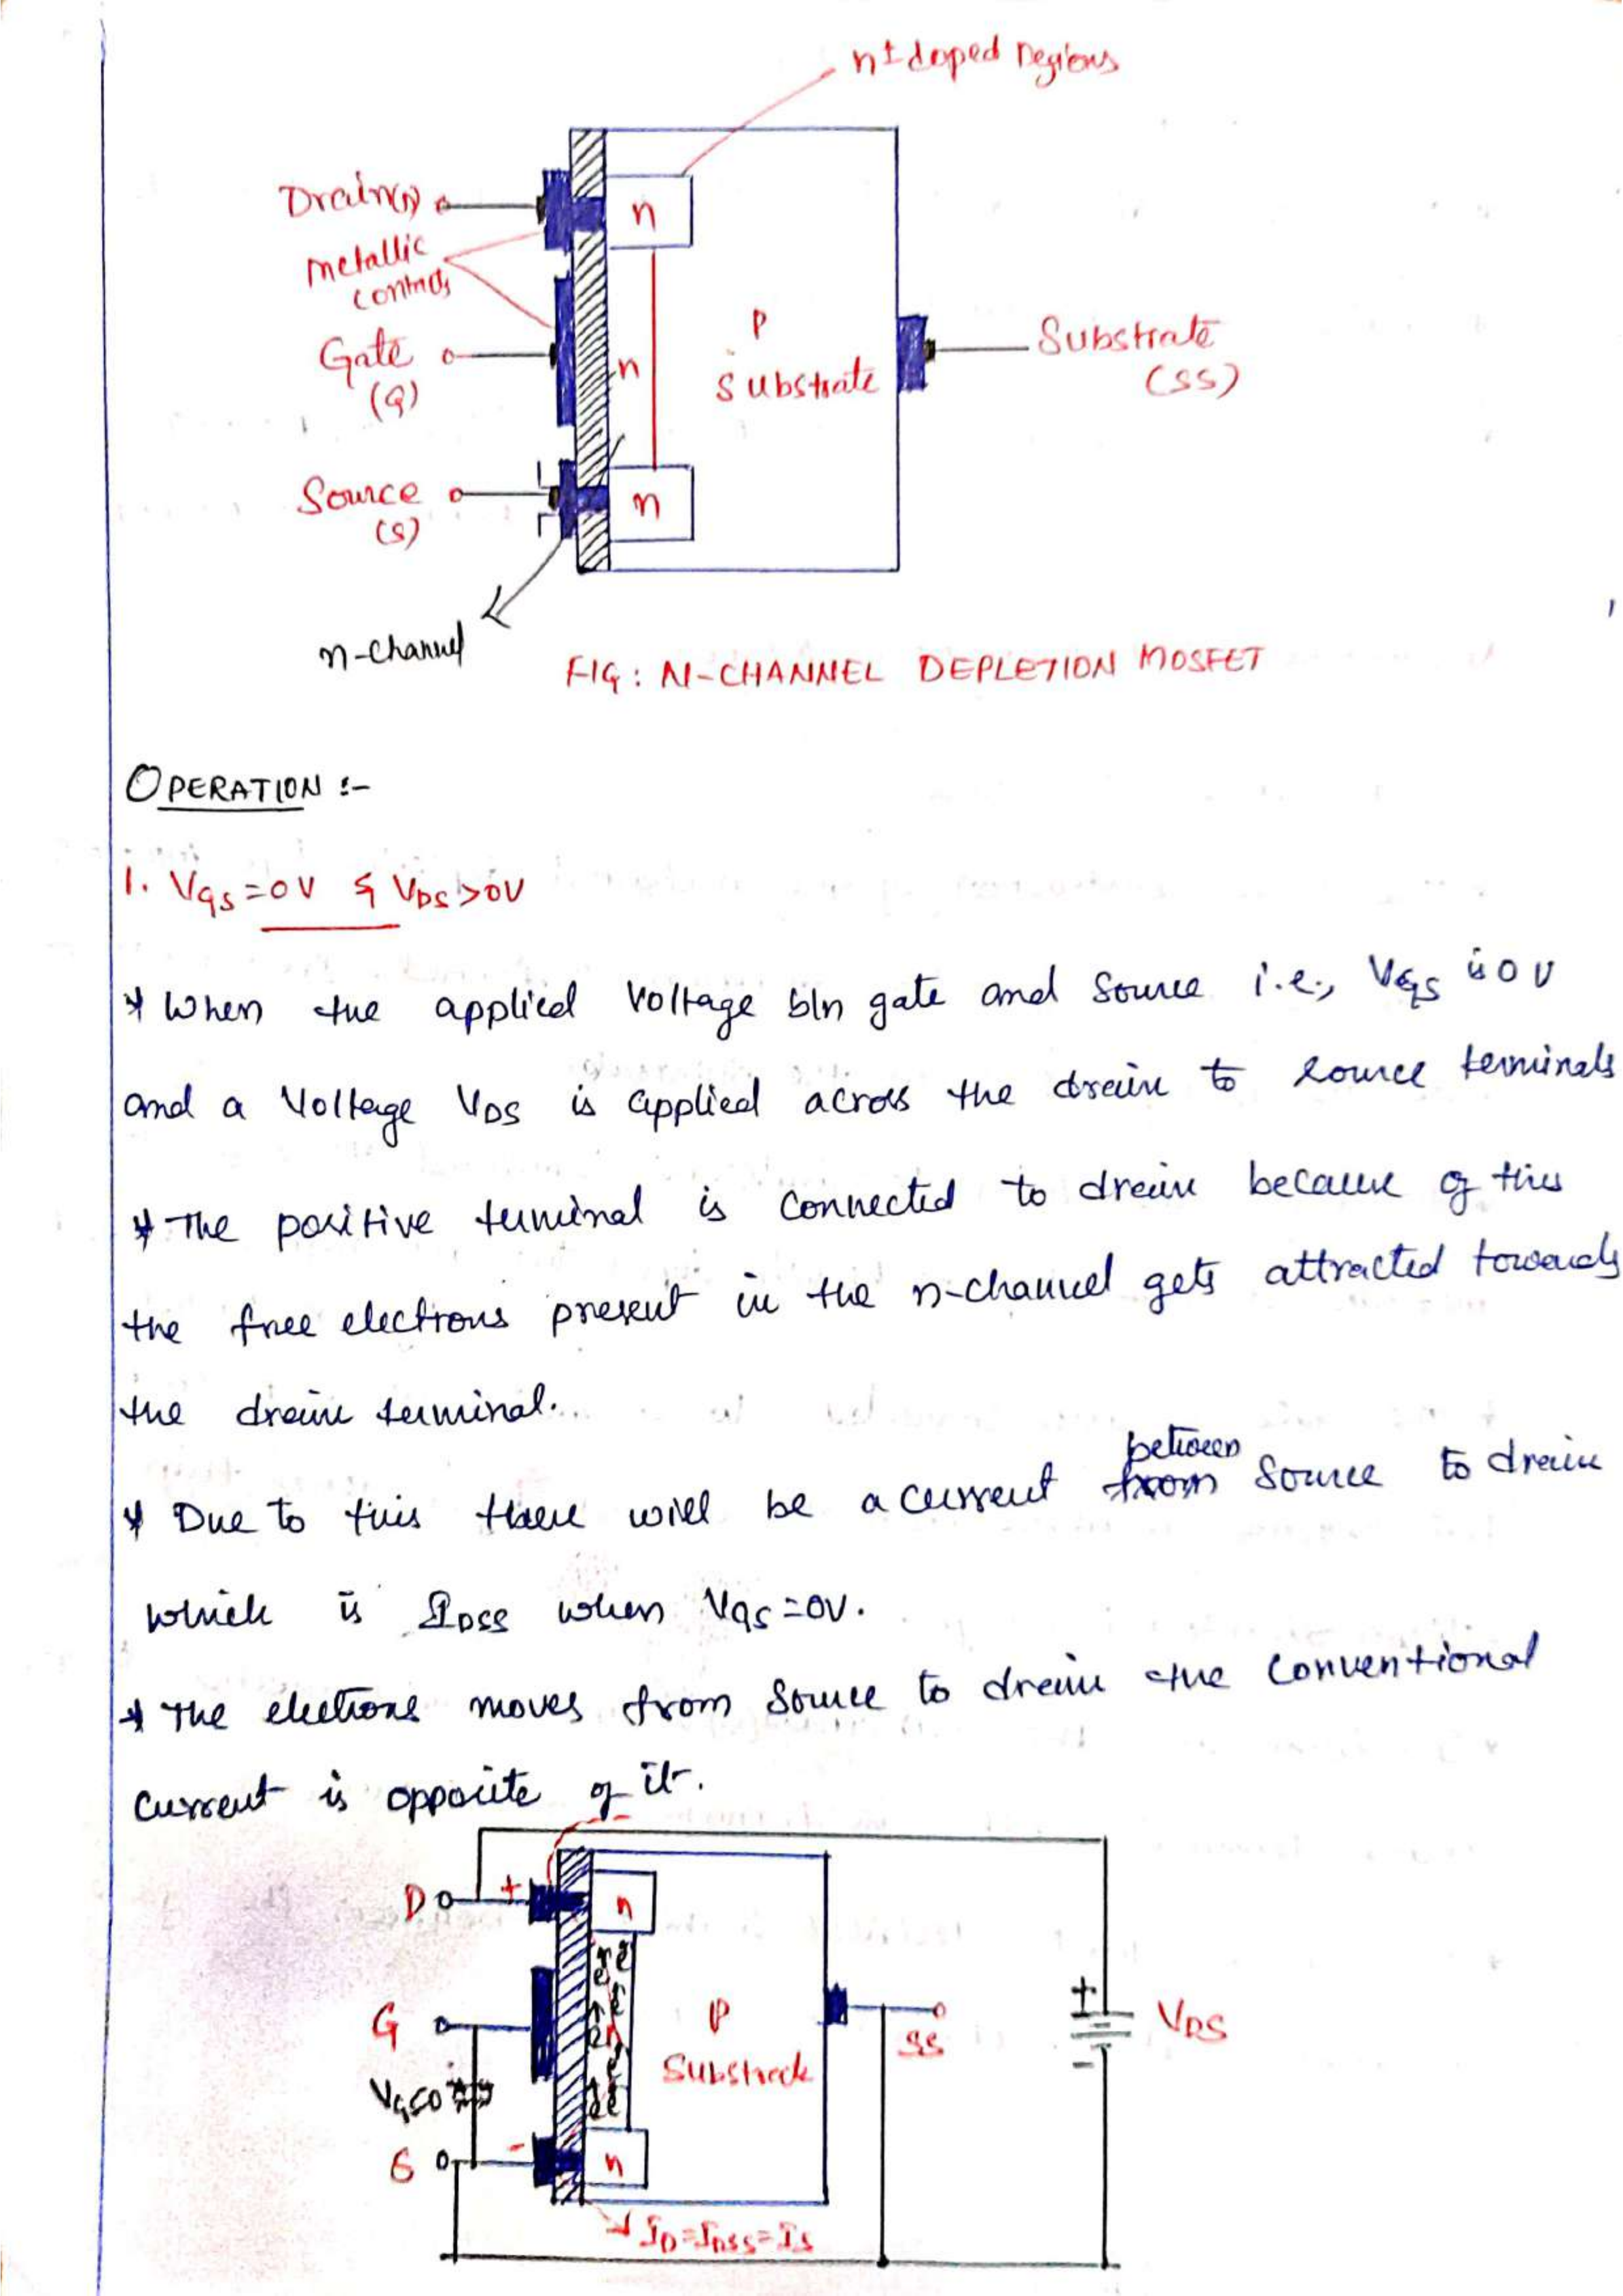 n± doped regions
Drain(D)
n
metallic
contacts
Gate
(G)
n
P
Substrate
Substrate
(SS)
Source
(S)
n
n-channel
FIG: N-CHANNEL DEPLETION MOSFET
OPERATION :-
1. VGS=0V & VDS>0V
* When the applied Voltage b/n gate and Source i.e., VGS is 0V
and a Voltage VDS is applied across the drain to source terminals
* The positive terminal is connected to drain because of this
the free electrons present in the n-channel gets attracted towards
the drain terminal.
* Due to this there will be a current between from Source to drain
which is IDSS when VGS=0V.
* The electrons moves from Source to drain the conventional
current is opposite of it.
D
+
n
e e
e
e
G
P
Substrate
SS
+
VDS
-
S
-
n
ID=IDSS=IS